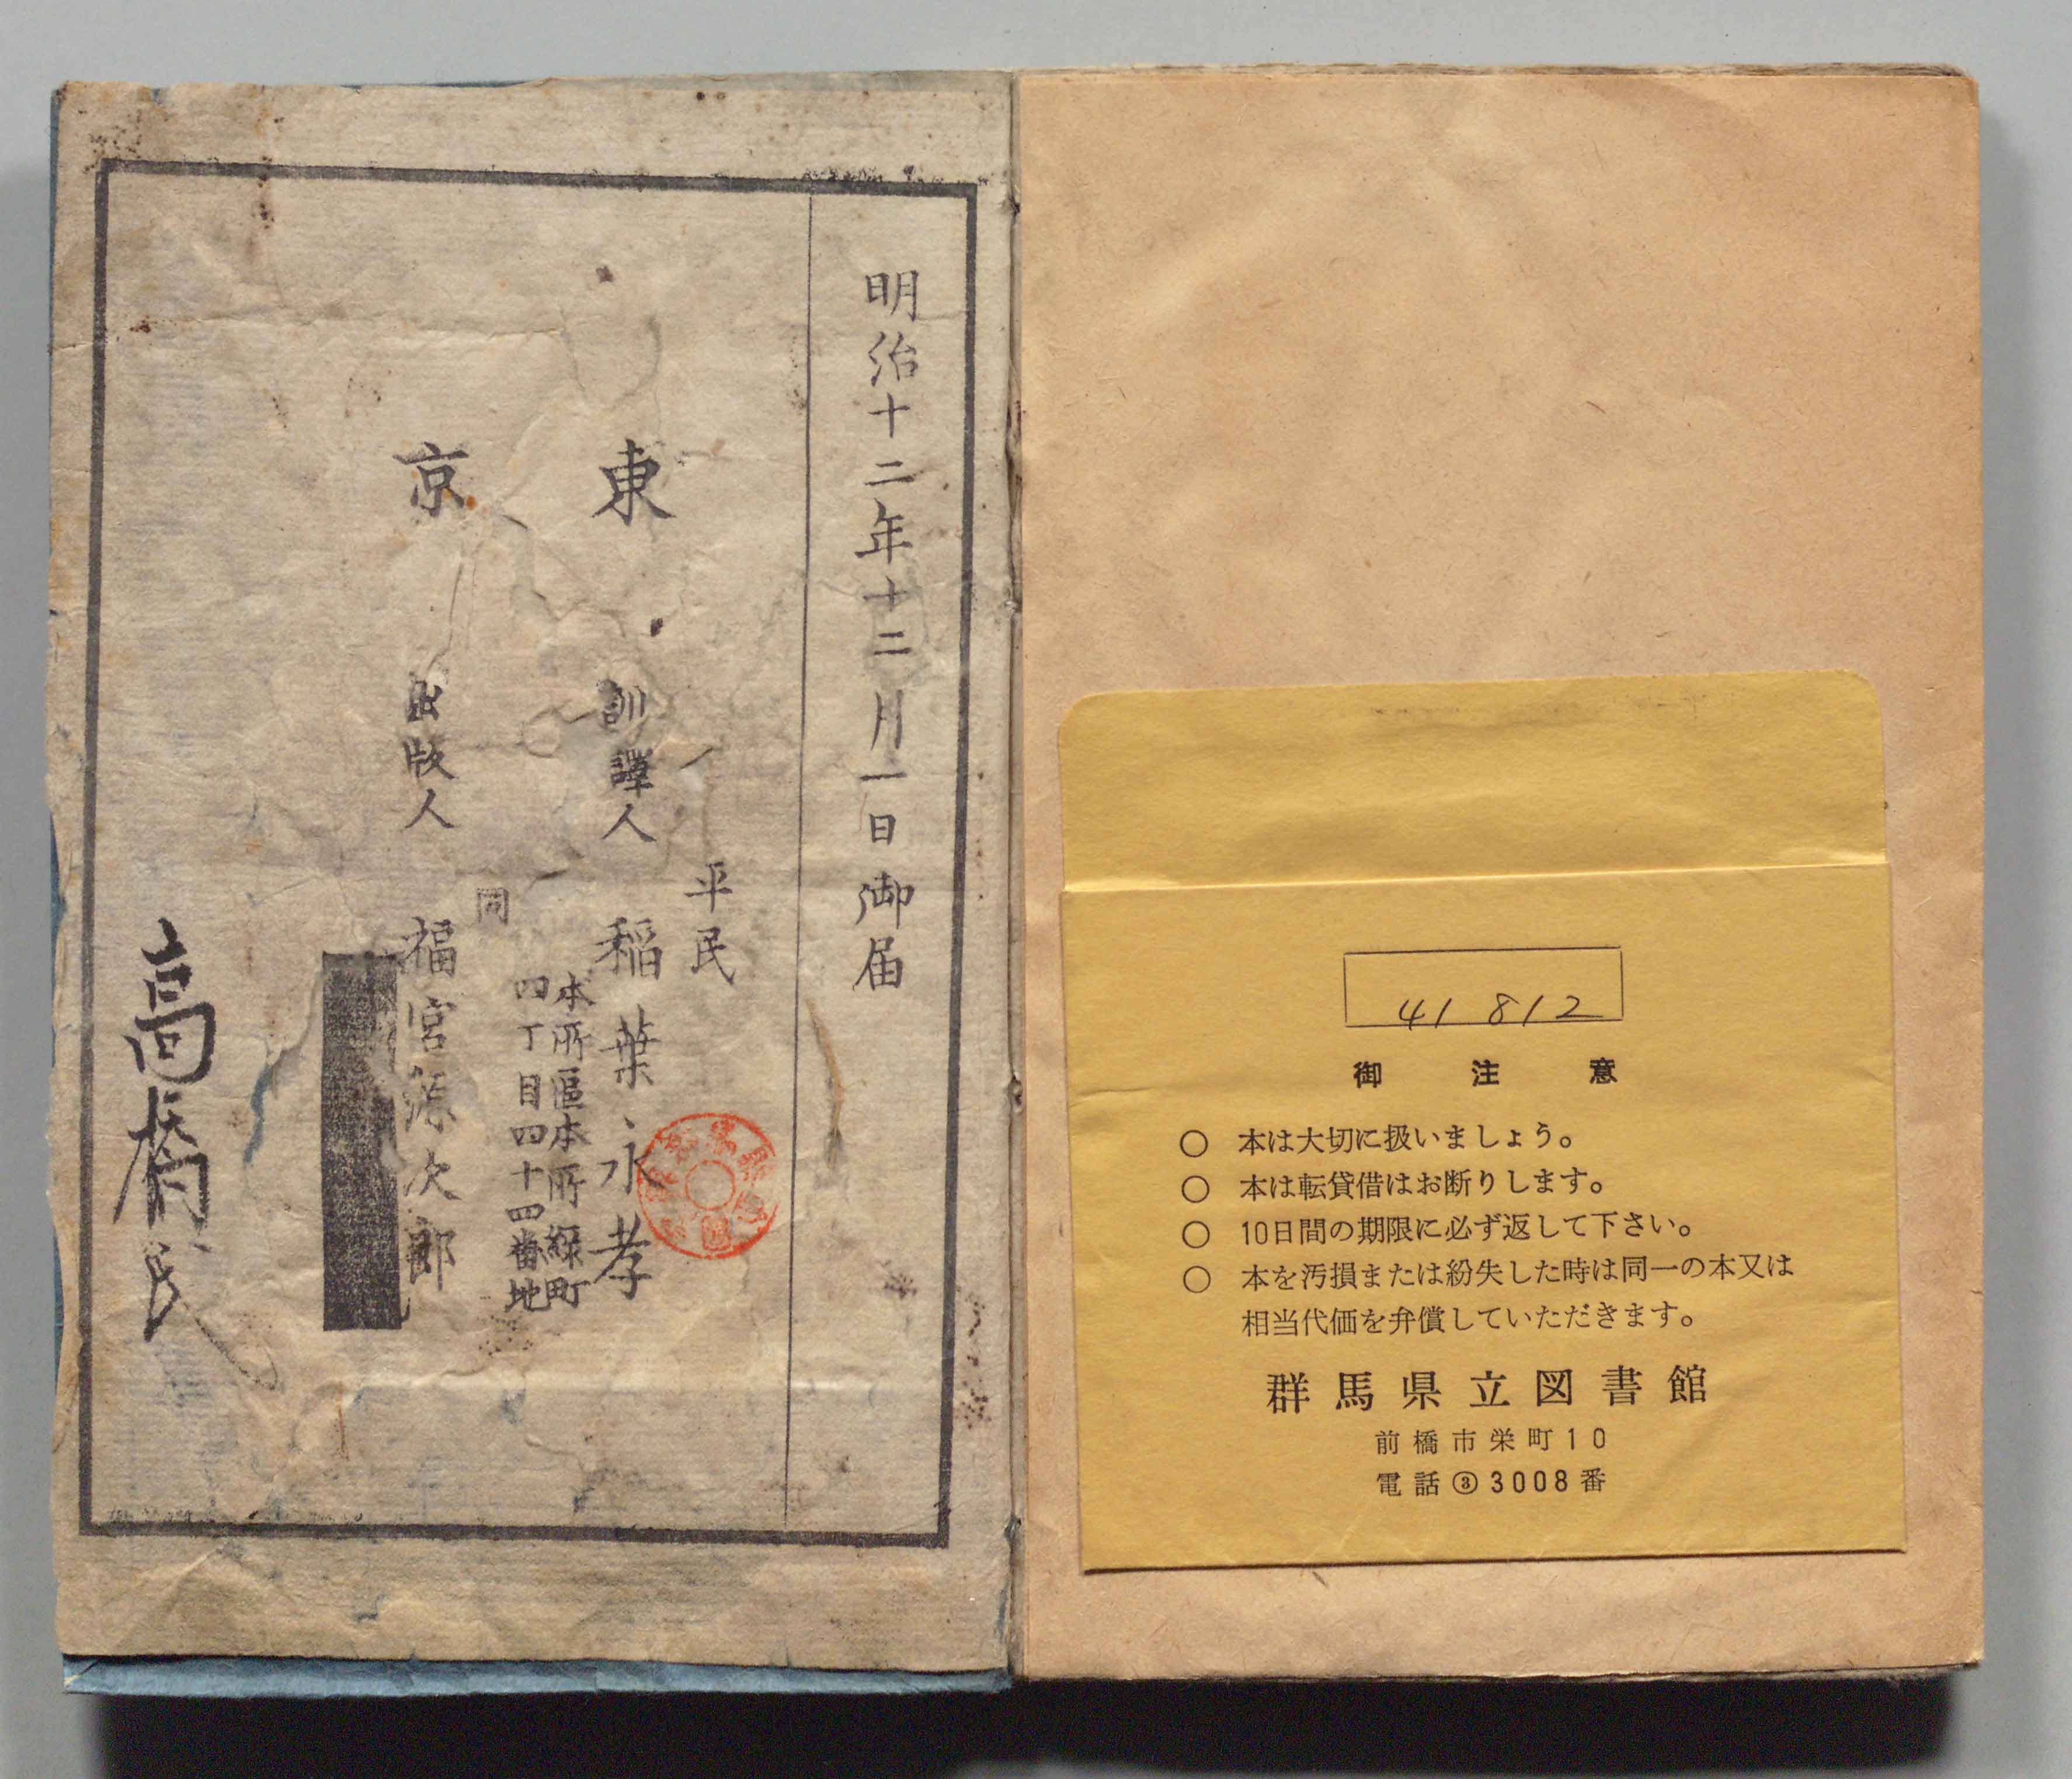 41 812
御注意
○ 本は大切に扱いましょう。
○ 本は転貸借はお断りします。
○ 10日間の期限に必ず返して下さい。
○ 本を汚損または紛失した時は同一の本又は
相当代価を弁償していただきます。
群馬県立図書館
前橋市栄町10
電話③3008番
明治十二年十二月一日御届
平民
東
訓譯人
稲葉永孝
本所區本所緑町
四丁目四十四番地
同
京
出版人
福宮源次郎
高橋氏